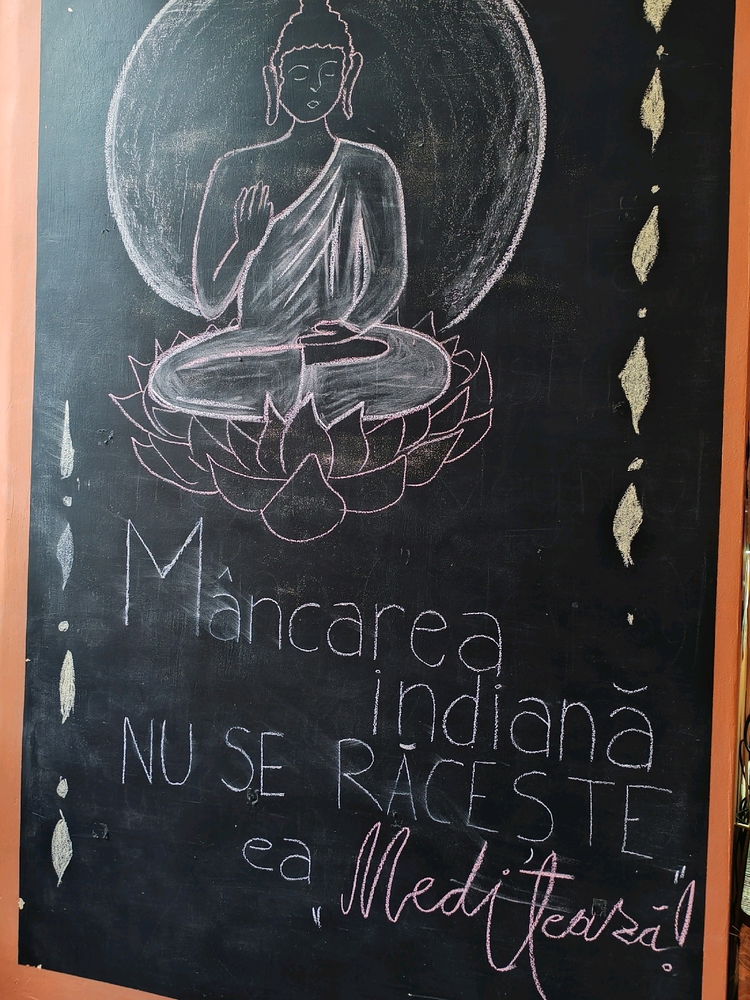 Mâncarea
indiană
NU SE RĂCEȘTE
ea „Meditează!"